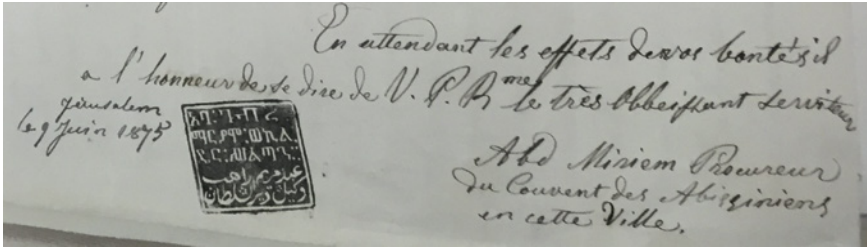 En attendant les effets de vos bontés il
a l'honneur de se dire de V. P. R^me le très Obbeissant serviteur
Jérusalem
le 9 Juin 1875
ማርያም፡
عبد مريم راهب
وكيل دير السلطان
Abd Miriem Procureur
du Couvent des Abissiniens
en cette Ville.